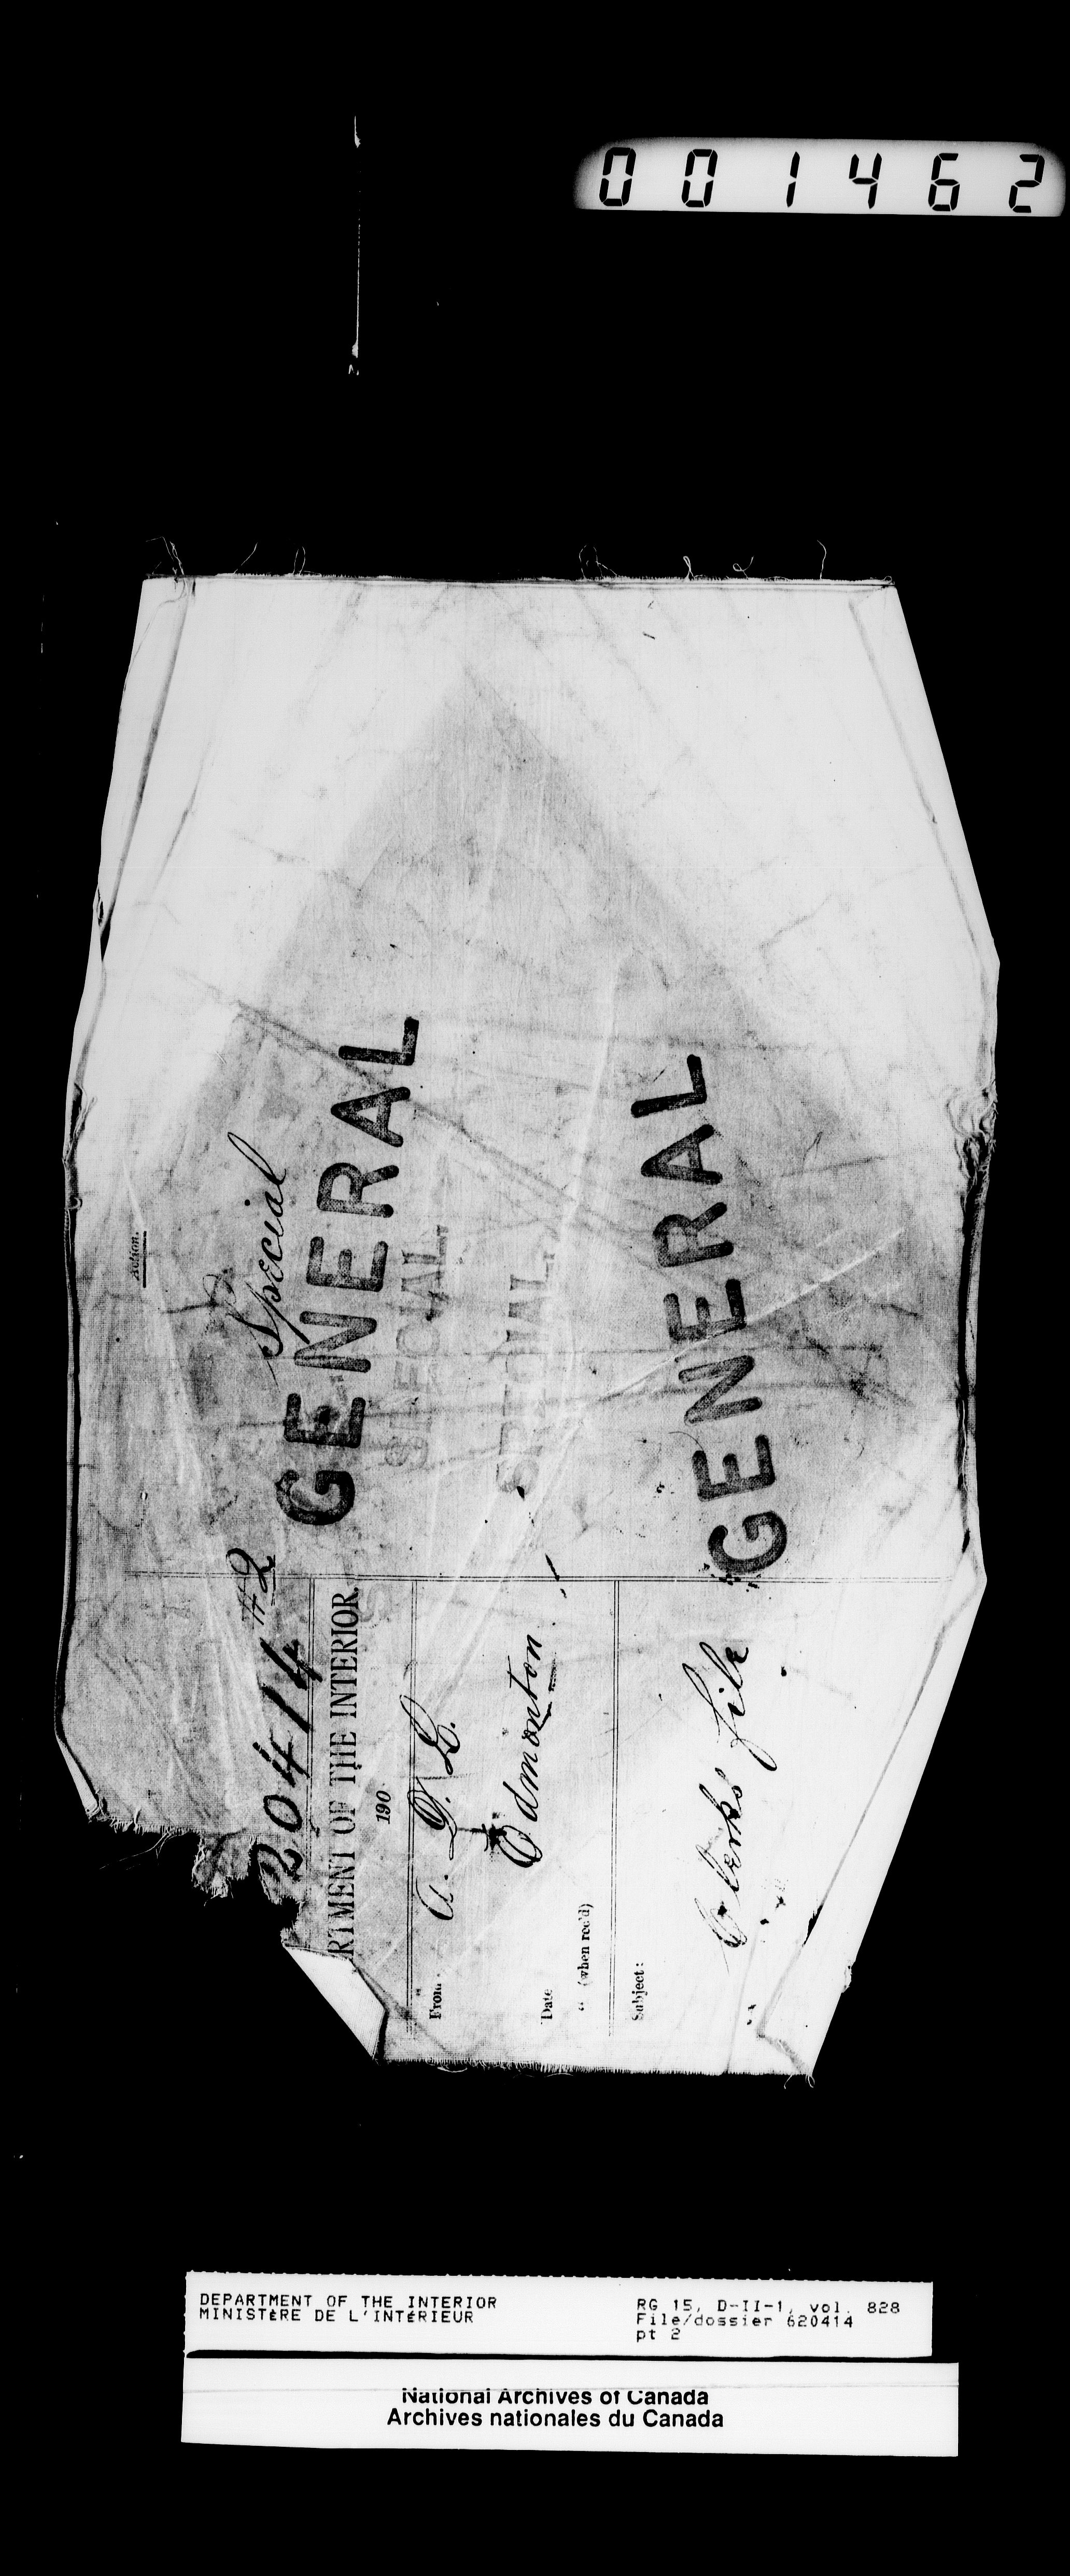 001462
Action.
Special
GENERAL
SPECIAL
SPECIAL
GENERAL
20414 #2
RTMENT OF THE INTERIOR.
190
From
A. D. L.
Edmonton
Date
" (when rec'd)
Subject:
Clerks file
DEPARTMENT OF THE INTERIOR
MINISTÈRE DE L'INTÉRIEUR
RG 15, D-II-1, vol. 828
File/dossier 620414
pt 2
National Archives of Canada
Archives nationales du Canada